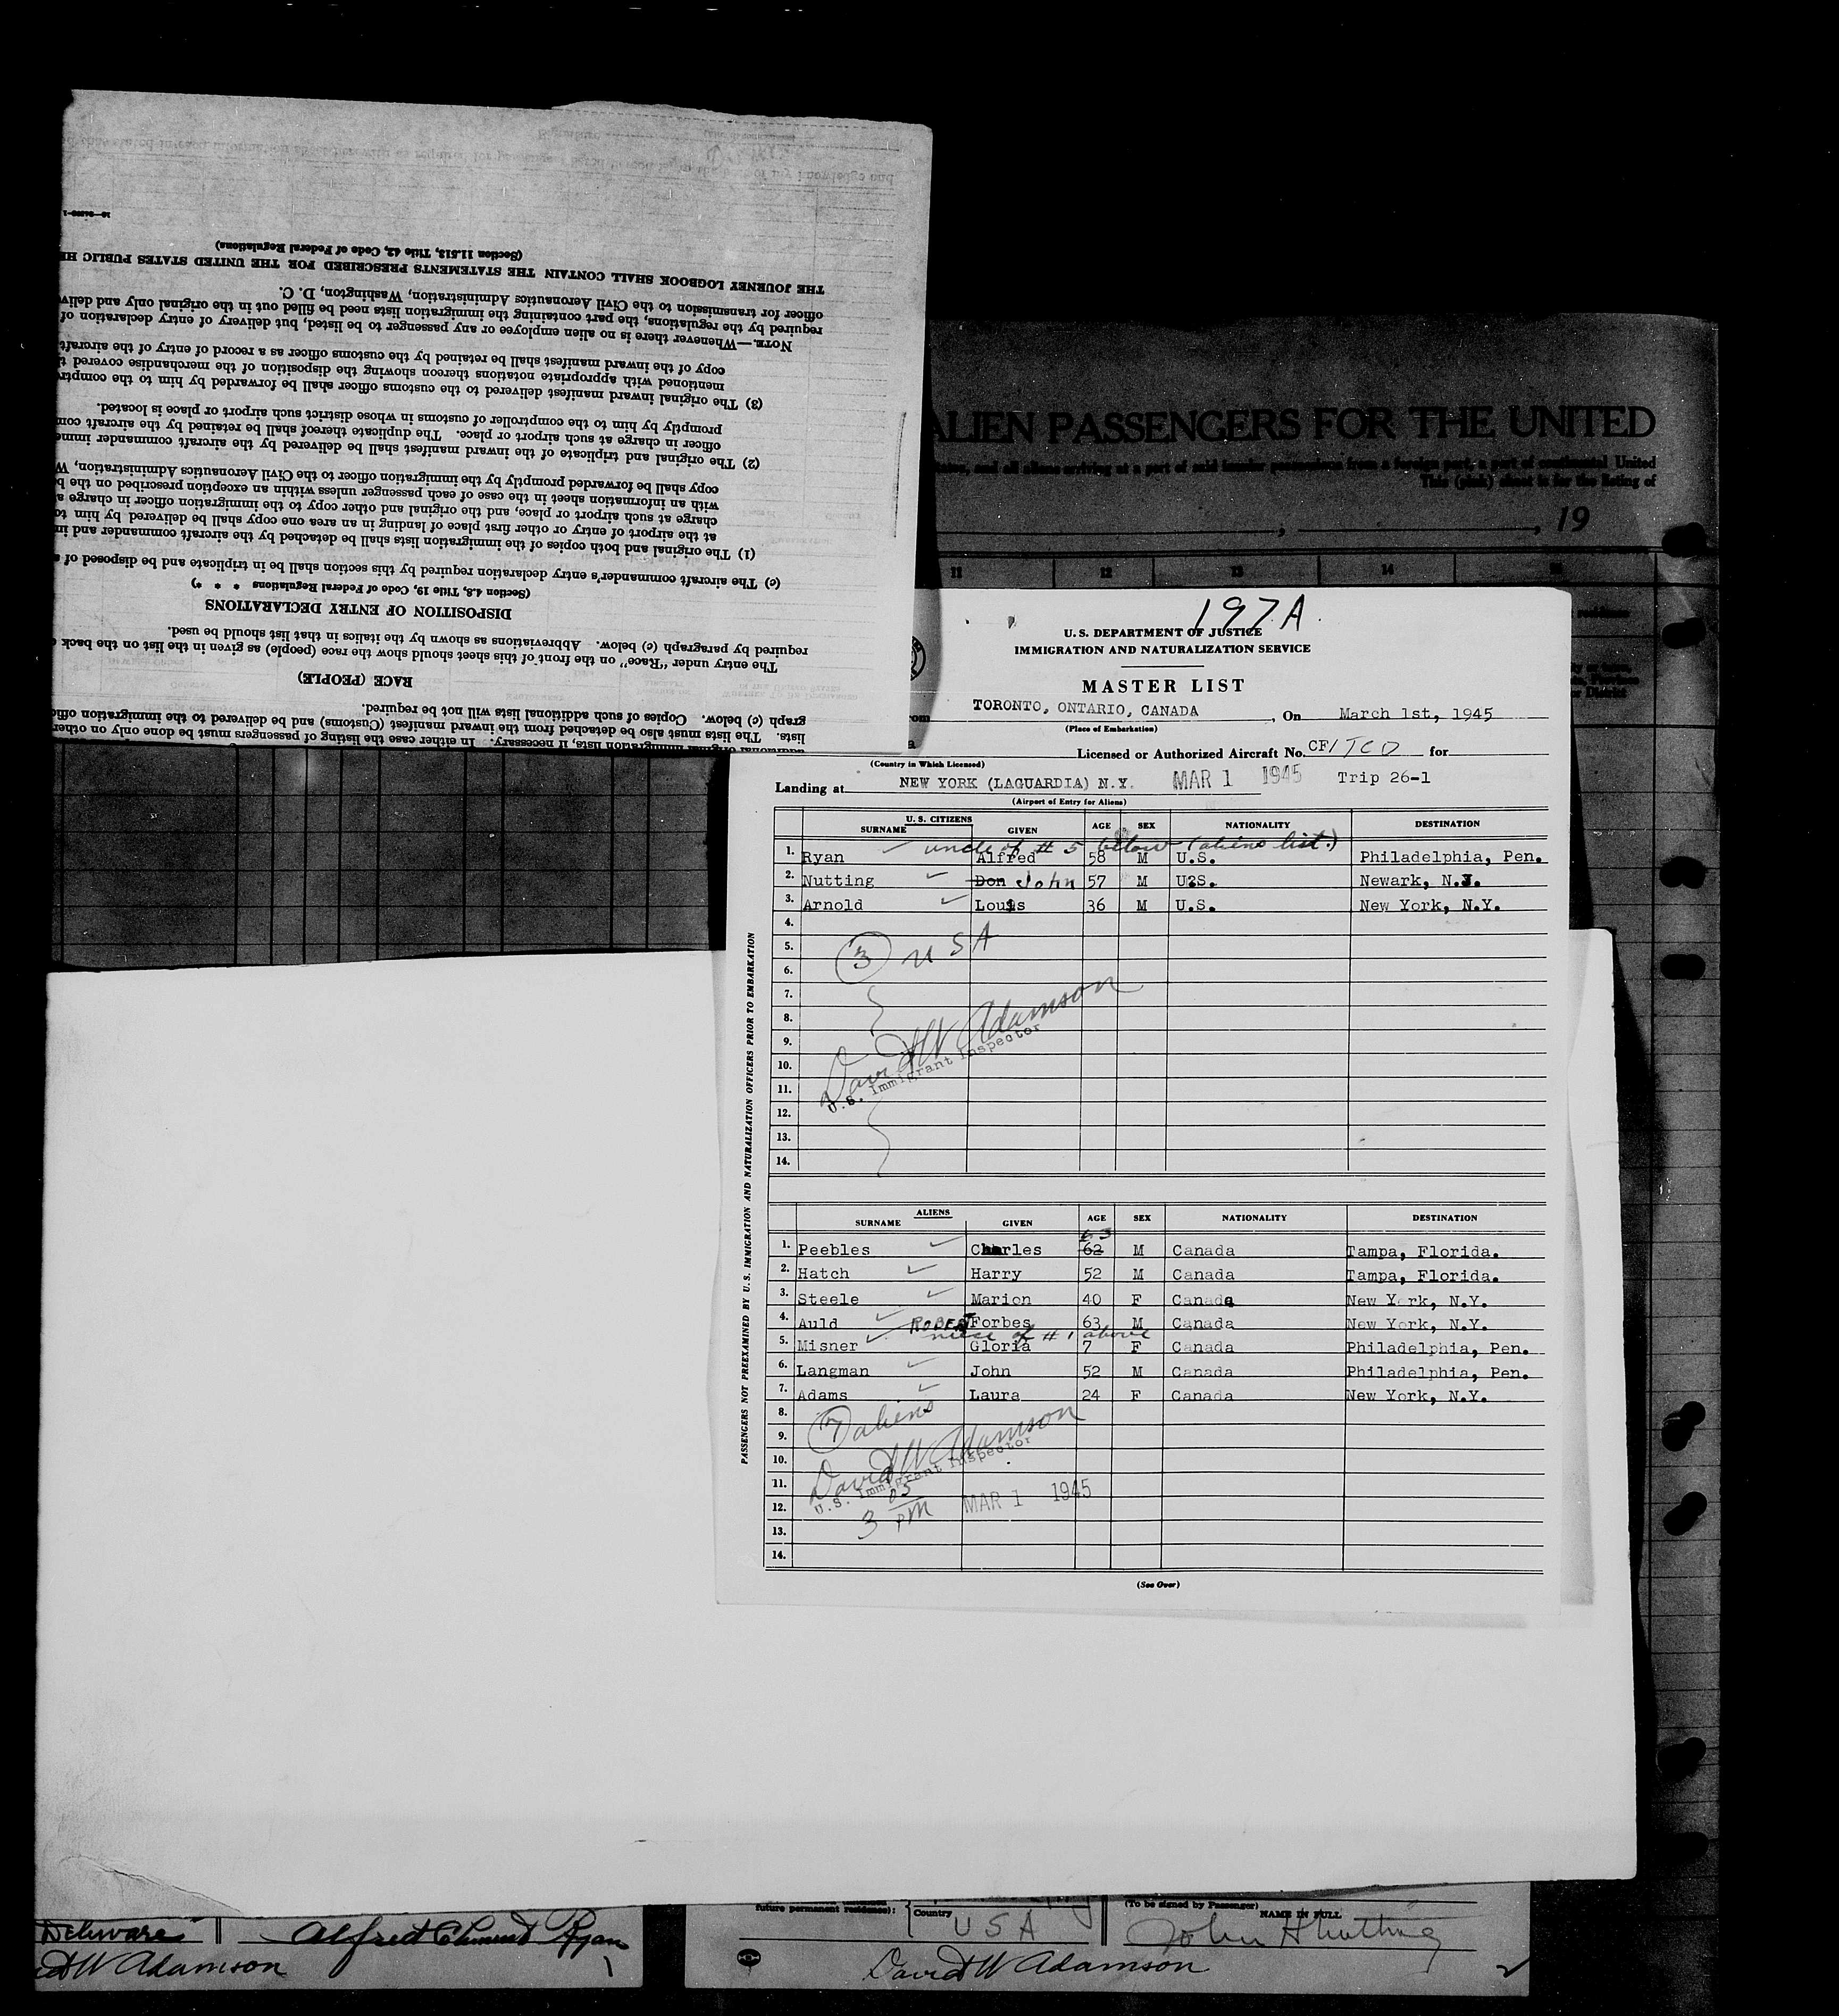 16—24890-1
(Section 11.513, Title 42, Code of Federal Regulations)
THE JOURNEY LOGBOOK SHALL CONTAIN THE STATEMENTS PRESCRIBED FOR THE UNITED STATES PUBLIC HE
officer for transmission to the Civil Aeronautics Administration, Washington, D. C.
required by the regulations, the part containing the immigration lists need be filled out in the original only and deliv
NOTE.—Whenever there is no alien employee or any passenger to be listed, but delivery of entry declaration of
copy of the inward manifest shall be retained by the customs officer as a record of entry of the aircraft
mentioned with appropriate notations thereon showing the disposition of the merchandise covered t
(3) The original inward manifest delivered to the customs officer shall be forwarded by him to the comptr
promptly by him to the comptroller of customs in whose district such airport or place is located.
officer in charge at such airport or place. The duplicate thereof shall be retained by the aircraft com
(2) The original and triplicate of the inward manifest shall be delivered by the aircraft commander imme
copy shall be forwarded promptly by the immigration officer to the Civil Aeronautics Administration, W
with an information sheet in the case of each passenger unless within an exception prescribed on the b
charge at such airport or place, and the original and other copy to the immigration officer in charge a
at the airport of entry or other first place of landing in an area one copy shall be delivered by him to
(1) The original and both copies of the immigration lists shall be detached by the aircraft commander and in
(c) The aircraft commander's entry declaration required by this section shall be in triplicate and be disposed of a
(Section 4.8, Title 19, Code of Federal Regulations * * *)
DISPOSITION OF ENTRY DECLARATIONS
required by paragraph (c) below. Abbreviations as shown by the italics in that list should be used.
The entry under "Race" on the front of this sheet should show the race (people) as given in the list on the back
RACE (PEOPLE)
graph (c) below. Copies of such additional lists will not be required.
lists. The lists must also be detached from the inward manifest (Customs) and be delivered to the immigration offic
additional original immigration lists, if necessary. In either case the listing of passengers must be done only on other
ALIEN PASSENGERS FOR THE UNITED
States, and all aliens arriving at a port of said insular possessions from a foreign port, a port of continental United
This (pink) sheet is for the listing of
, , 19
11 12 13 14
197A.
U. S. DEPARTMENT OF JUSTICE
IMMIGRATION AND NATURALIZATION SERVICE
MASTER LIST
TORONTO, ONTARIO, CANADA, On March 1st, 1945
(Place of Embarkation)
Licensed or Authorized Aircraft No. CF/TCD for
(Country in Which Licensed)
Landing at NEW YORK (LAGUARDIA) N.Y. MAR 1 1945 Trip 26-1
(Airport of Entry for Aliens)
U. S. CITIZENS
SURNAME GIVEN AGE SEX NATIONALITY DESTINATION
uncle of # 5 below (aliens list.)
1. Ryan Alfred 58 M U.S. Philadelphia, Pen.
2. Nutting Don John 57 M U.S. Newark, N.J.
3. Arnold Louis 36 M U.S. New York, N.Y.
4.
5.
3 USA
6.
7.
8.
9.
David W Adamson
10.
U.S. Immigrant Inspector
11.
12.
13.
14.
PASSENGERS NOT PREEXAMINED BY U.S. IMMIGRATION AND NATURALIZATION OFFICERS PRIOR TO EMBARKATION
ALIENS
SURNAME GIVEN AGE SEX NATIONALITY DESTINATION
63
1. Peebles Charles 62 M Canada Tampa, Florida.
2. Hatch Harry 52 M Canada Tampa, Florida.
3. Steele Marion 40 F Canada New York, N.Y.
4. Auld ROBERT Forbes 63 M Canada New York, N.Y.
niece of # 1 above
5. Misner Gloria 7 F Canada Philadelphia, Pen.
6. Langman John 52 M Canada Philadelphia, Pen.
7. Adams Laura 24 F Canada New York, N.Y.
8.
7 aliens
9.
10.
David W Adamson
11.
U.S. Immigrant Inspector
12.
3 05 PM MAR 1 1945
13.
14.
(See Over)
Delaware Alfred Clement Ryan
David W Adamson
future permanent residence): Country USA
(To be signed by Passenger)
NAME IN FULL
John H Nutting
David W Adamson